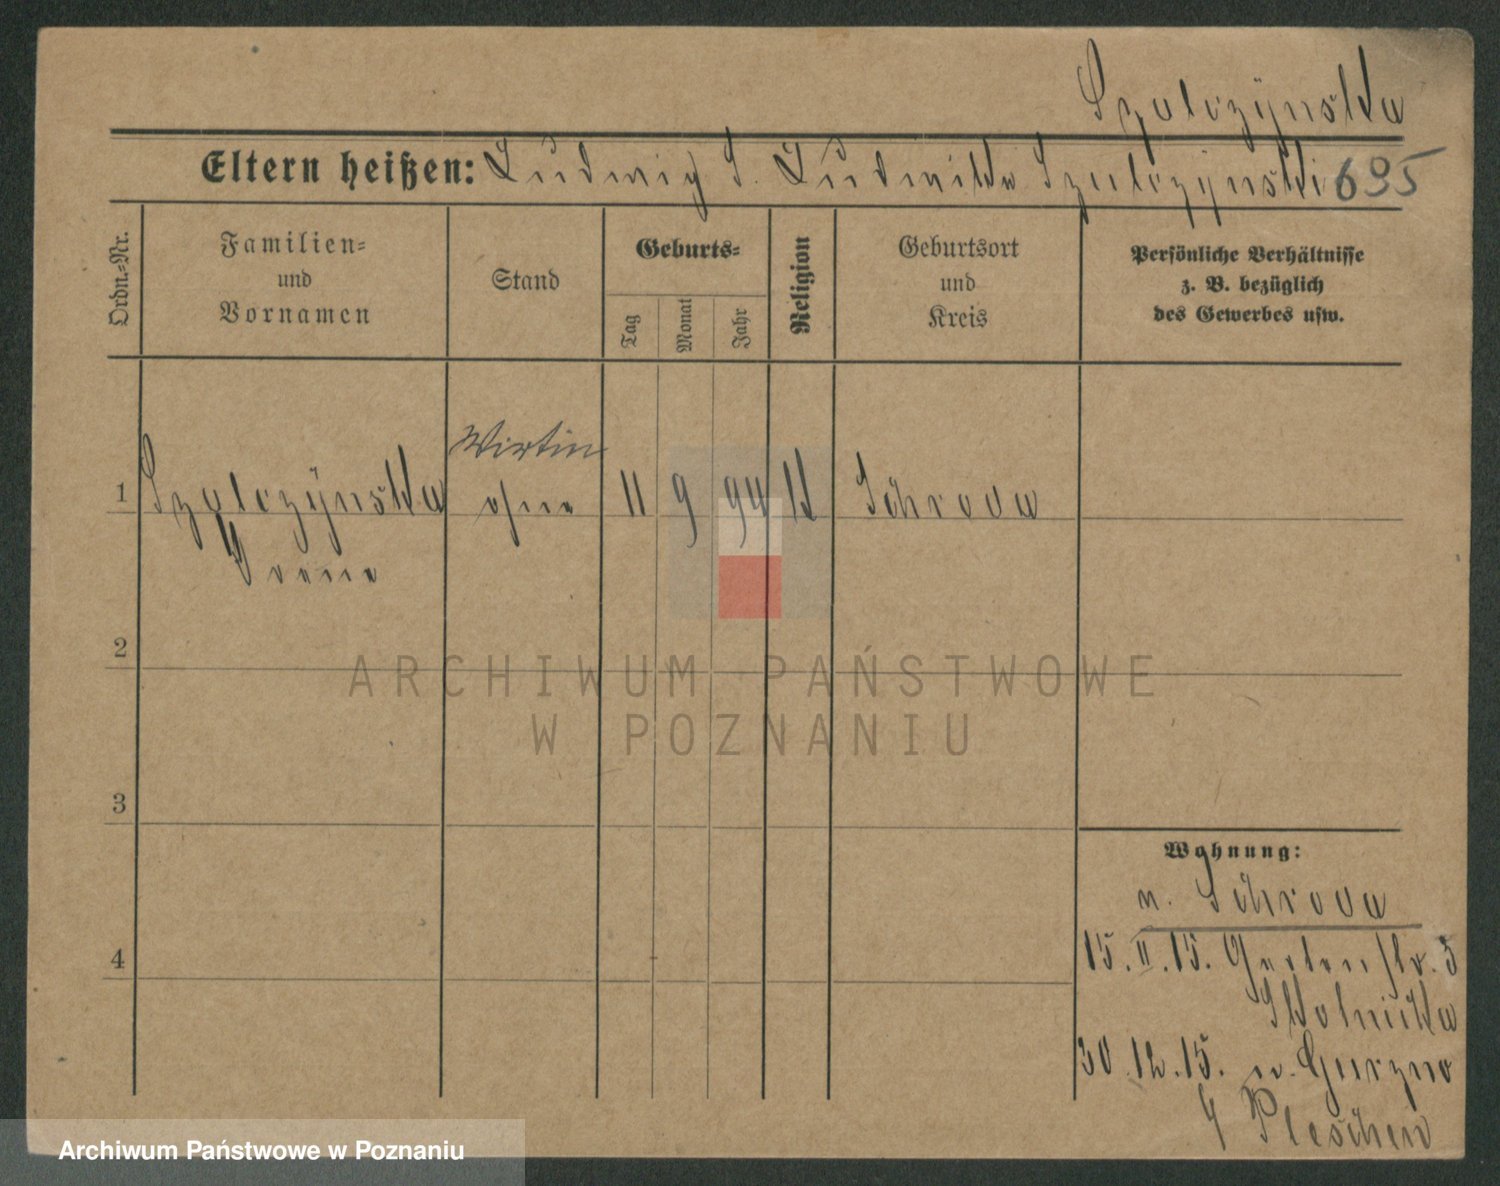 Szulczynska
Eltern heißen: Ludwig S. Ludwika Szulczynski 695
Ordn.=Nr.
Familien=
und
Vornamen
Stand
Geburts=
Tag
Monat
Jahr
Religion
Geburtsort
und
Kreis
Persönliche Verhältnisse
z. B. bezüglich
des Gewerbes usw.
Wirtin
1 Szulczynska ohne 11 9 94 k Schroda
2
3
4
Wohnung:
n. Schroda
15. II. 15. Gartenstr. 3
Skolnicka
30. 12. 15. n. Gurzno
Pleschen
ARCHIWUM PAŃSTWOWE
W POZNANIU
Archiwum Państwowe w Poznaniu